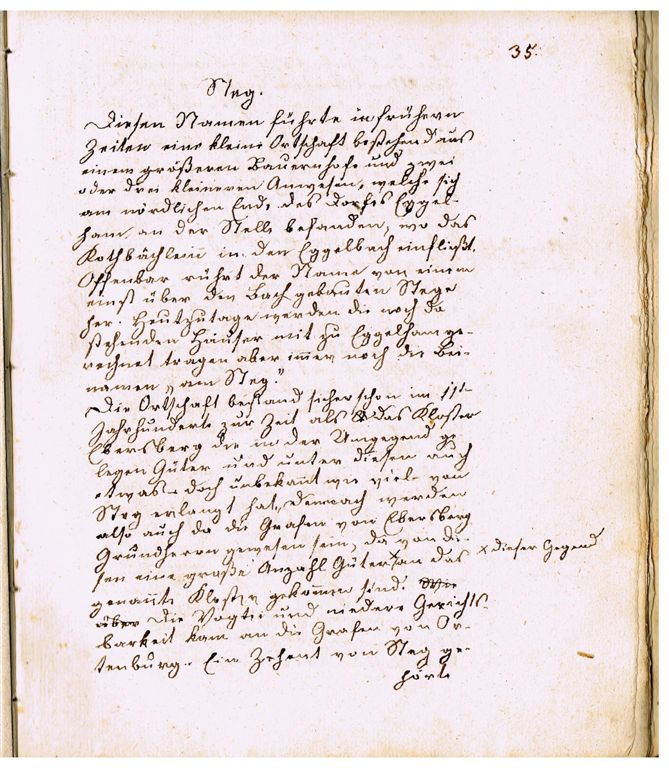 35.
Steg.
Diesen Namen führte in frühern
Zeiten eine kleine Ortschaft bestehend aus
einem größeren Bauernhofe und zwei
oder drei kleineren Anwesen, welche sich
am nördlichen Ende des Dorfes Eggel-
ham an der Stelle befanden, wo das
Kothbächlein in den Eggelbach einfließt.
Offenbar rührt der Name von einem
einst über den Bach gebauten Stege
her. Heutzutage werden die noch da
stehenden Häuser mit zu Eggelham ge-
rechnet tragen aber immer noch den Bei-
namen „am Steg."
Die Ortschaft bestand sicher schon im 11ten
Jahrhunderte zur Zeit als das Kloster
Ebersberg die in der Umgegend ge
legen Güter und unter diesen auch
etwas doch unbekannt wie viel von
Steg erlangt hat, demnach werden
also auch da die Grafen von Ebersberg
Grundherrn gewesen sein, da von die-
sen eine große Anzahl Güter x an das x dieser Gegend
genannte Kloster gekommen sind.
Die Vogtei und niedere Gerichts-
barkeit kam an die Grafen von Or-
tenburg. Ein Zehent von Steg ge-
hörte